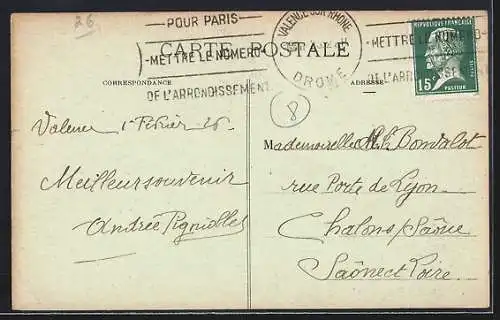 26
POUR PARIS
METTRE LE NUMERO
DE L'ARRONDISSEMENT
VALENCE SUR RHONE
DROME
METTRE LE NUMERO
DE L'ARR
15c
PASTEUR
CARTE POSTALE
CORRESPONDANCE
ADRESSE
8
Valence 1er Février 26
Meilleur souvenir
Andrée
Mademoiselle Bondalot
rue Porte de Lyon
Chalons/Saône
Saône et Loire